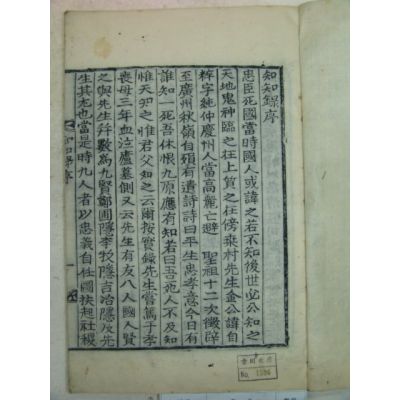 知知錄序
忠臣死國當時國人或諱之若不知後世必公知之
天地鬼神臨之在上質之在傍桑村先生金公諱自
粹字純仲慶州人當高麗亡避 聖祖十二次徵辟
至廣州秋嶺自頌有遺詩詩曰平生忠孝意今日有
誰知一死吾休恨九原應有知若曰吾施人不及知
惟天知之惟君父知之云爾按實錄先生嘗篤于孝
喪母三年血泣廬墓側又云先生有友八人國人賢
之與先生幷數爲九賢鄭圃隱李牧隱吉冶隱及先
生其尤也當是時九人者以忠義自任國扶起社稷
知知錄序 一
No.